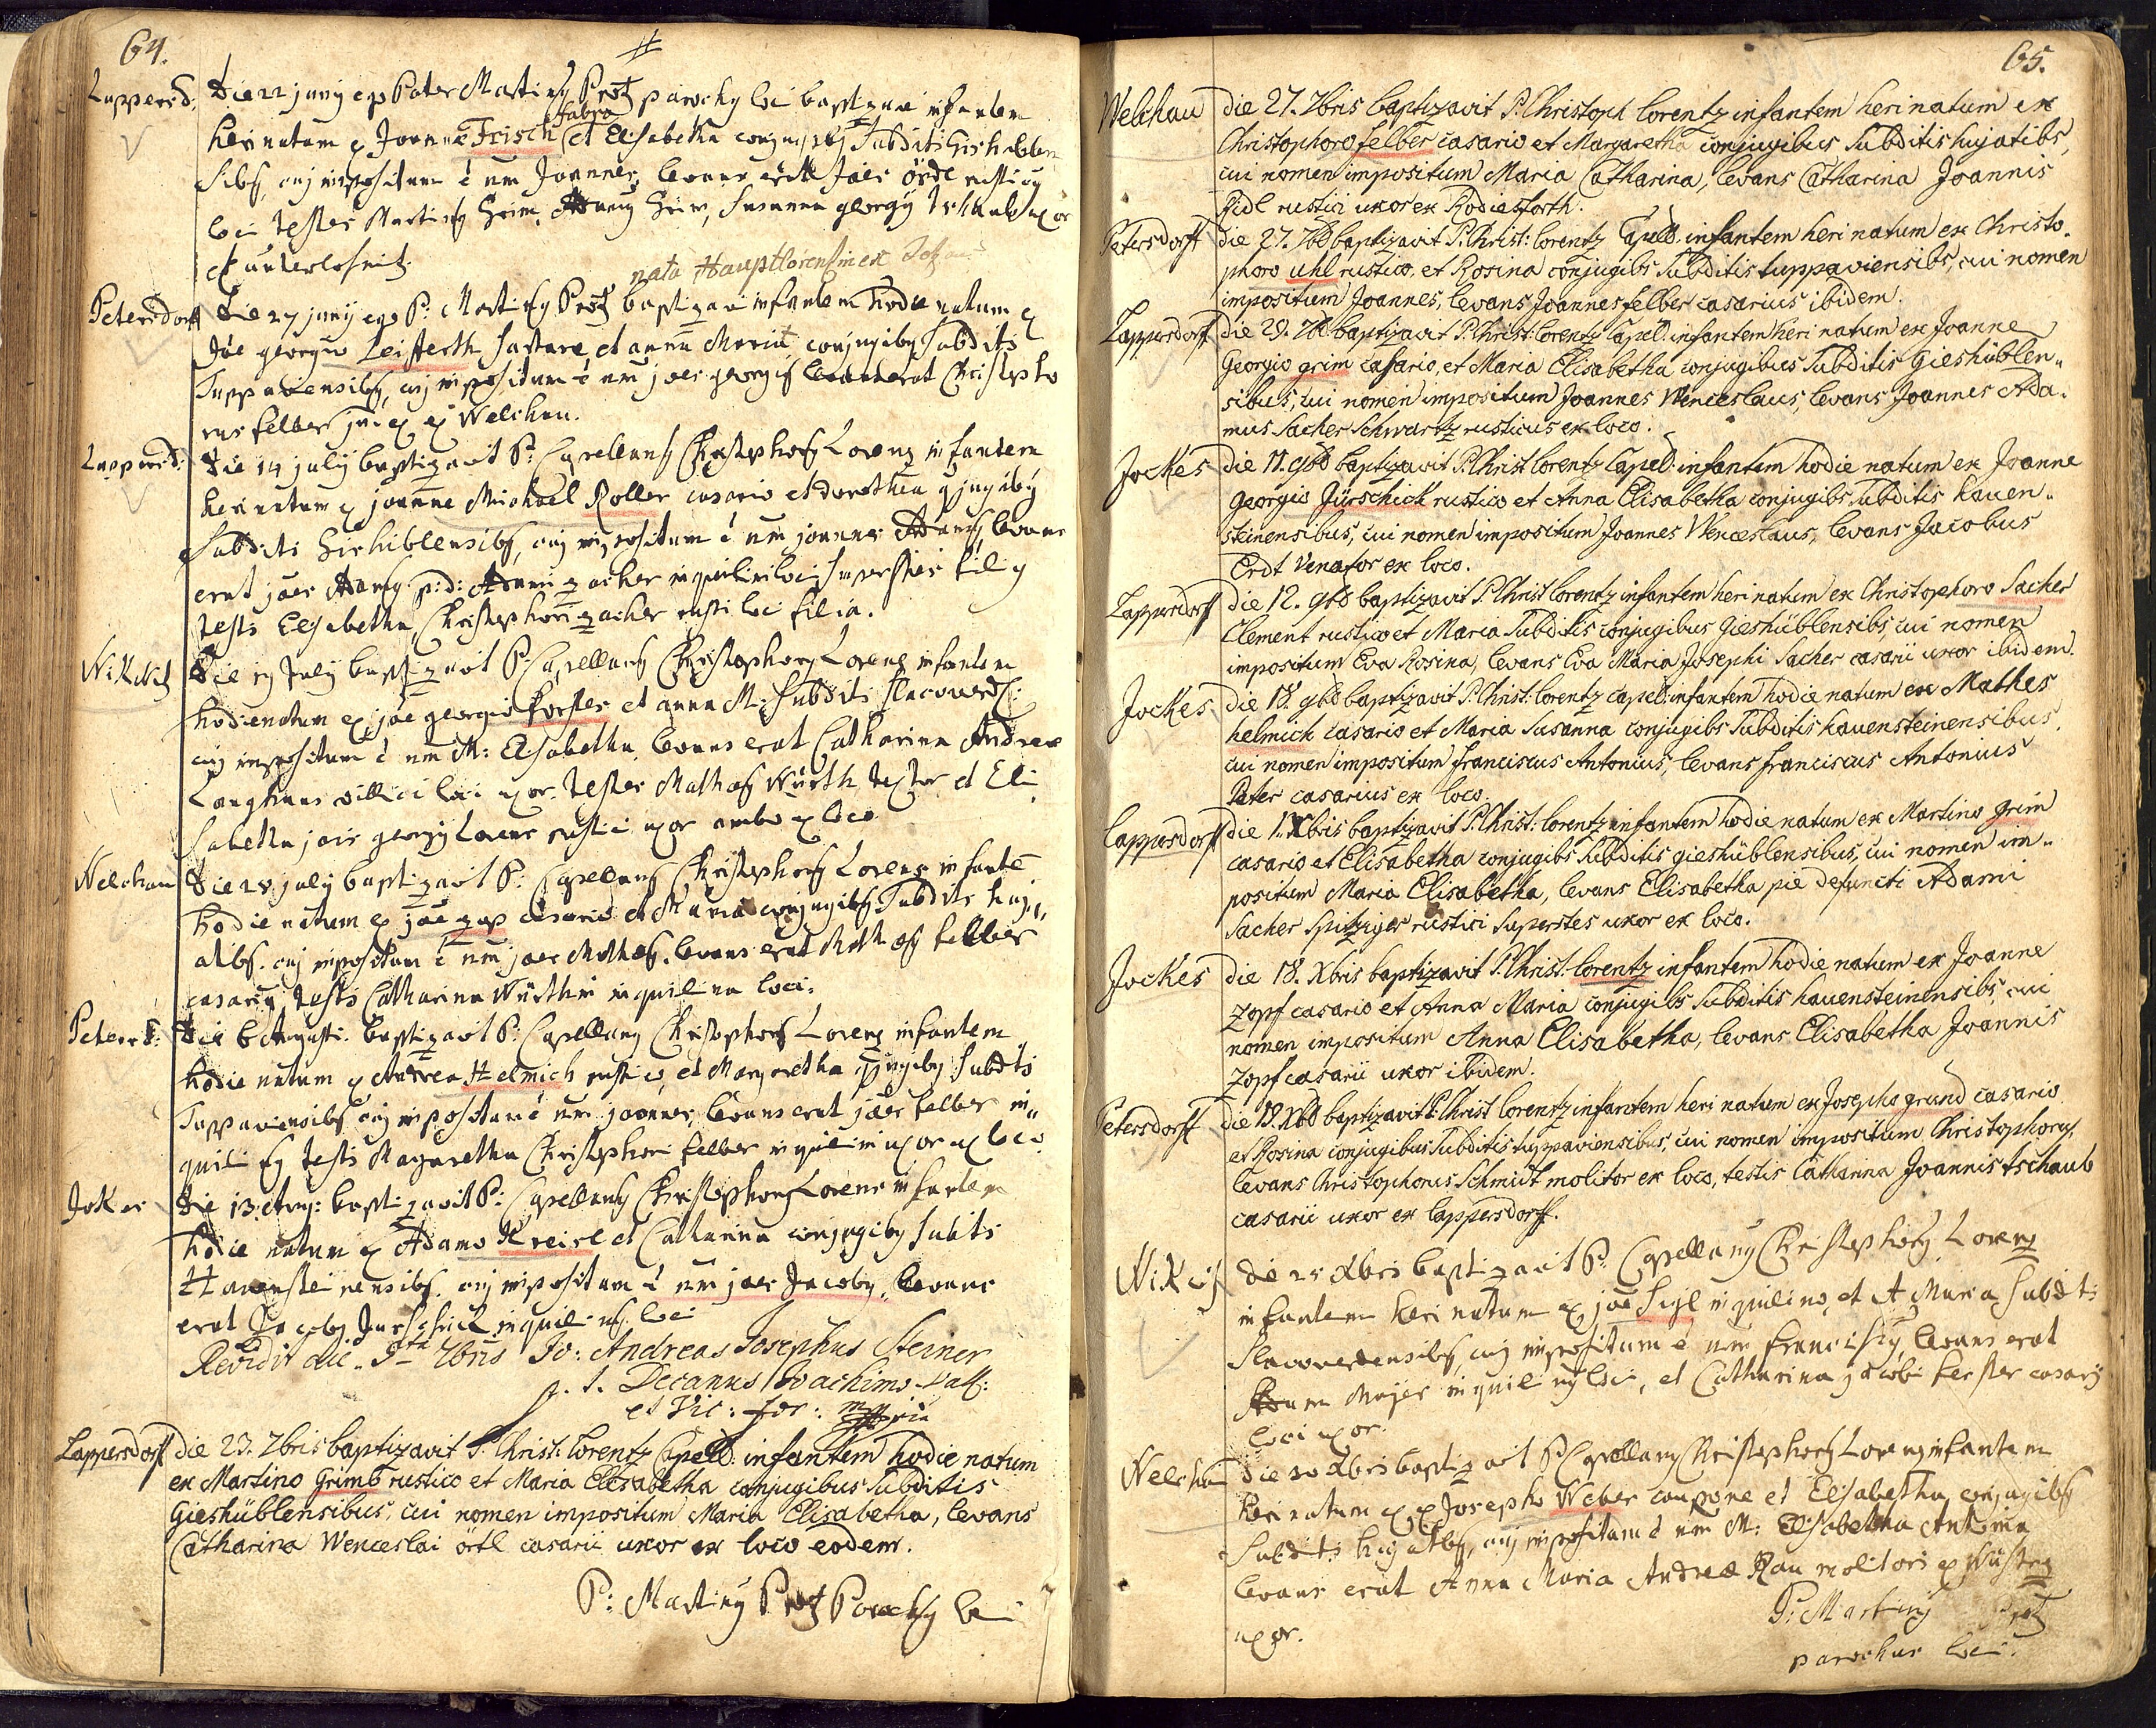 64.
Lappersd: die 22 junij ego Pater Martinus Protz parochus loci baptizavi infantem
heri natum ex Joanne Frisch fabro et Elisabetha conjugibus Subditis Gishiblen
sibus, cuj impositum é nm Joannes, levans
loci testes Martinus Grim, Susanna georgij uxor
nata Hauptlorensin ex
Petersdorff die 27 junij ego P: Martinus Protz baptizavi infantem hodie natum ex
Joe georgio Leifferth sartore, et anna Maria conjugibus Subditis
Tuppaviensibus, cuj impositum é nm joes georgius levans erat Christopho
rus felber ex Welchau.
Lappersd: die 14 julij baptizavit P: Capellanus Christophorus Lorenz infantem
heri natum ex joanne Michael Roller casario et dorothea conjugibus
Subditis Gishiblensibus, cuj impositum é nm joannes Adamus, levans
erat joes Adamus p: d: Adami zacher inquilini loci superstes filius
testis Elisabetha Christophori zacher rustici loci filia.
Wikwitz die 19 Julij baptizavit P: Capellanus Christophorus Lorenz infantem
hodie natum ex joe georgio forster et anna M: Subditis Slacoverd:
cuj impositum é nm M: Elisabetha levans erat Catharina Andreae
Langhans villici loci uxor. testes Mathes Würth textor et Eli
sabetha jois georgij Lorenz rustici uxor ambo ex loco
Welchau die 28 julij baptizavit P: Capellanus Christophorus Lorenz infantē
hodie natum ex joe zap casario et Maria conjugibus Subditis huj.,
atibs. cuj impositum é nm joes Mathes. levans erat Mathes felber
casarius, testis Catharina Würthin inquilina loci.
Petersd: die 6 Augusti baptizavit P: Capellanus Christophorus Lorenz infantem
hodie natum ex Andrea Helmich rustico, et Margaretha conjugibus Subditis
Tuppaviensibus cuj impositum é nm joannes, levans erat joes felber in„
quilinus testis Margaretha Christophori felber inquilini uxor ex loco
Jokes die 13 Aug: baptizavit P: Capellanus Christophorus Lorenz infantem
hodie natum ex Adamo Kreisl et Catharina conjugibus Subditis
Hauensteinensibus. cuj impositum é nm joes Jacobus, levans
erat Jacobus Jurschick inquilinus loci
Revidit die 9na 7bris Jo: Andreas Josephus Steiner
p. t. Decanus Joachimo Vall:
et Vic: for: mppria
Lappersdorff die 23. 7bris baptizavit P. Christ: Lorentz Capell: infantem hodie natum
ex Martino Grimb rustico et Maria Elisabetha conjugibus Subditis
Gieshüblensibus, cui nomen impositum Maria Elisabetha, levans
Catharina Wenceslai örtl casarii uxor ex loco eodem.
P: Martinus Protz Parochus loci
65.
Welchau die 27. 7bris baptizavit P. Christoph Lorentz infantem heri natum ex
Christophoro felber casario et Margaretha conjugibus Subditis hujatibs,
cui nomen impositum Maria Catharina, levans Catharina Joannis
Pidl rustici uxor ex Rodiesforth.
Petersdorff die 27. 7bd baptizavit P. Christ: Lorentz Capell: infantem heri natum ex Christo„
phoro Uhl rustico, et Rosina conjugibs Subditis tuppaviensibs, cui nomen
impositum Joannes, levans Joannes felber casarius ibidem.
Lappersdorff die 29. 7bd baptizavit P. Christ: Lorentz Capel: infantem heri natum ex Joanne
Georgio grim casario, et Maria Elisabetha conjugibus Subditis Gieshüblen„
sibus, cui nomen impositum Joannes Wenceslaus, levans Joannes Ada„
mus Sacher Schwartz rusticus ex loco.
Jockes die 11. 9bd baptizavit P. Christ Lorentz Capel: infantem hodie natum ex Joanne
Georgio Jürschick rustico et Anna Elisabetha conjugibs Subditis hauen„
steinensibus, cui nomen impositum Joannes Wenceslaus, levans Jacobus
Erdt Venator ex loco.
Lappersdorff die 12. 9bd baptizavit P. Christ Lorentz infantem heri natum ex Christophoro Sacher
Clement rustico et Maria Subditis conjugibus Gieshüblensibs, cui nomen
impositum Eva Rosina, levans Eva Maria Josephi Sacher casarii uxor ibidem.
Jockes die 18. 9bd baptizavit P. Christ: Lorentz capel: infantem hodie natum ex Mathes
helmich casario et Maria Susanna conjugibs Subditis hauensteinensibus
cui nomen impositum franciscus Antonius, levans franciscus Antonius
Peter casarius ex loco.
Lappersdorff die 1. Xbris baptizavit P. Christ: Lorentz infantem hodie natum ex Martino grim
casario et Elisabetha conjugibs Subditis gieshüblensibus, cui nomen im„
positum Maria Elisabetha, levans Elisabetha pie defuncti Adami
Sacher Spitziger rustici Superstes uxor ex loco.
Jockes die 18. Xbris baptizavit P. Christ: Lorentz infantem hodie natum ex Joanne
Zopf casario et Anna Maria conjugibs Subditis hauensteinensibs, cui
nomen impositum Anna Elisabetha, levans Elisabetha Joannis
Zopf casarii uxor ibidem.
Petersdorff die 19. Xbd baptizavit P. Christ Lorentz infantem heri natum ex Josepho grund casario
et Rosina conjugibus Subditis tuppaviensibus, cui nomen impositum Christophorus,
levans Christophorus Schmidt molitor ex loco, testis Catharina Joannis tschaub
casarii uxor ex Lappersdorff.
Wikwitz die 25 Xbris baptizavit P. Capellanus Christophorus Lorenz
infantem heri natum ex joe Sigl inquilino, et A Maria Subditis
Slacoverdensibus, cuj impositum é nm franciscus, levans erat
Adam Majer inquilinus loci, et Catharina jacobi ferster casarij
loci uxor.
Welchau die 30 Xbris baptizavit P Capellanus Christophorus Lorenz infantem
heri natum ex Josepho Weber caupone et Elisabetha conjugibus
Subditis hujatibus, cuj impositum é nm M: Elisabetha Antonia
levans erat Anna Maria Andreae Rau molitoris ex
uxor.
P: Martinus Protz
parochus loci.